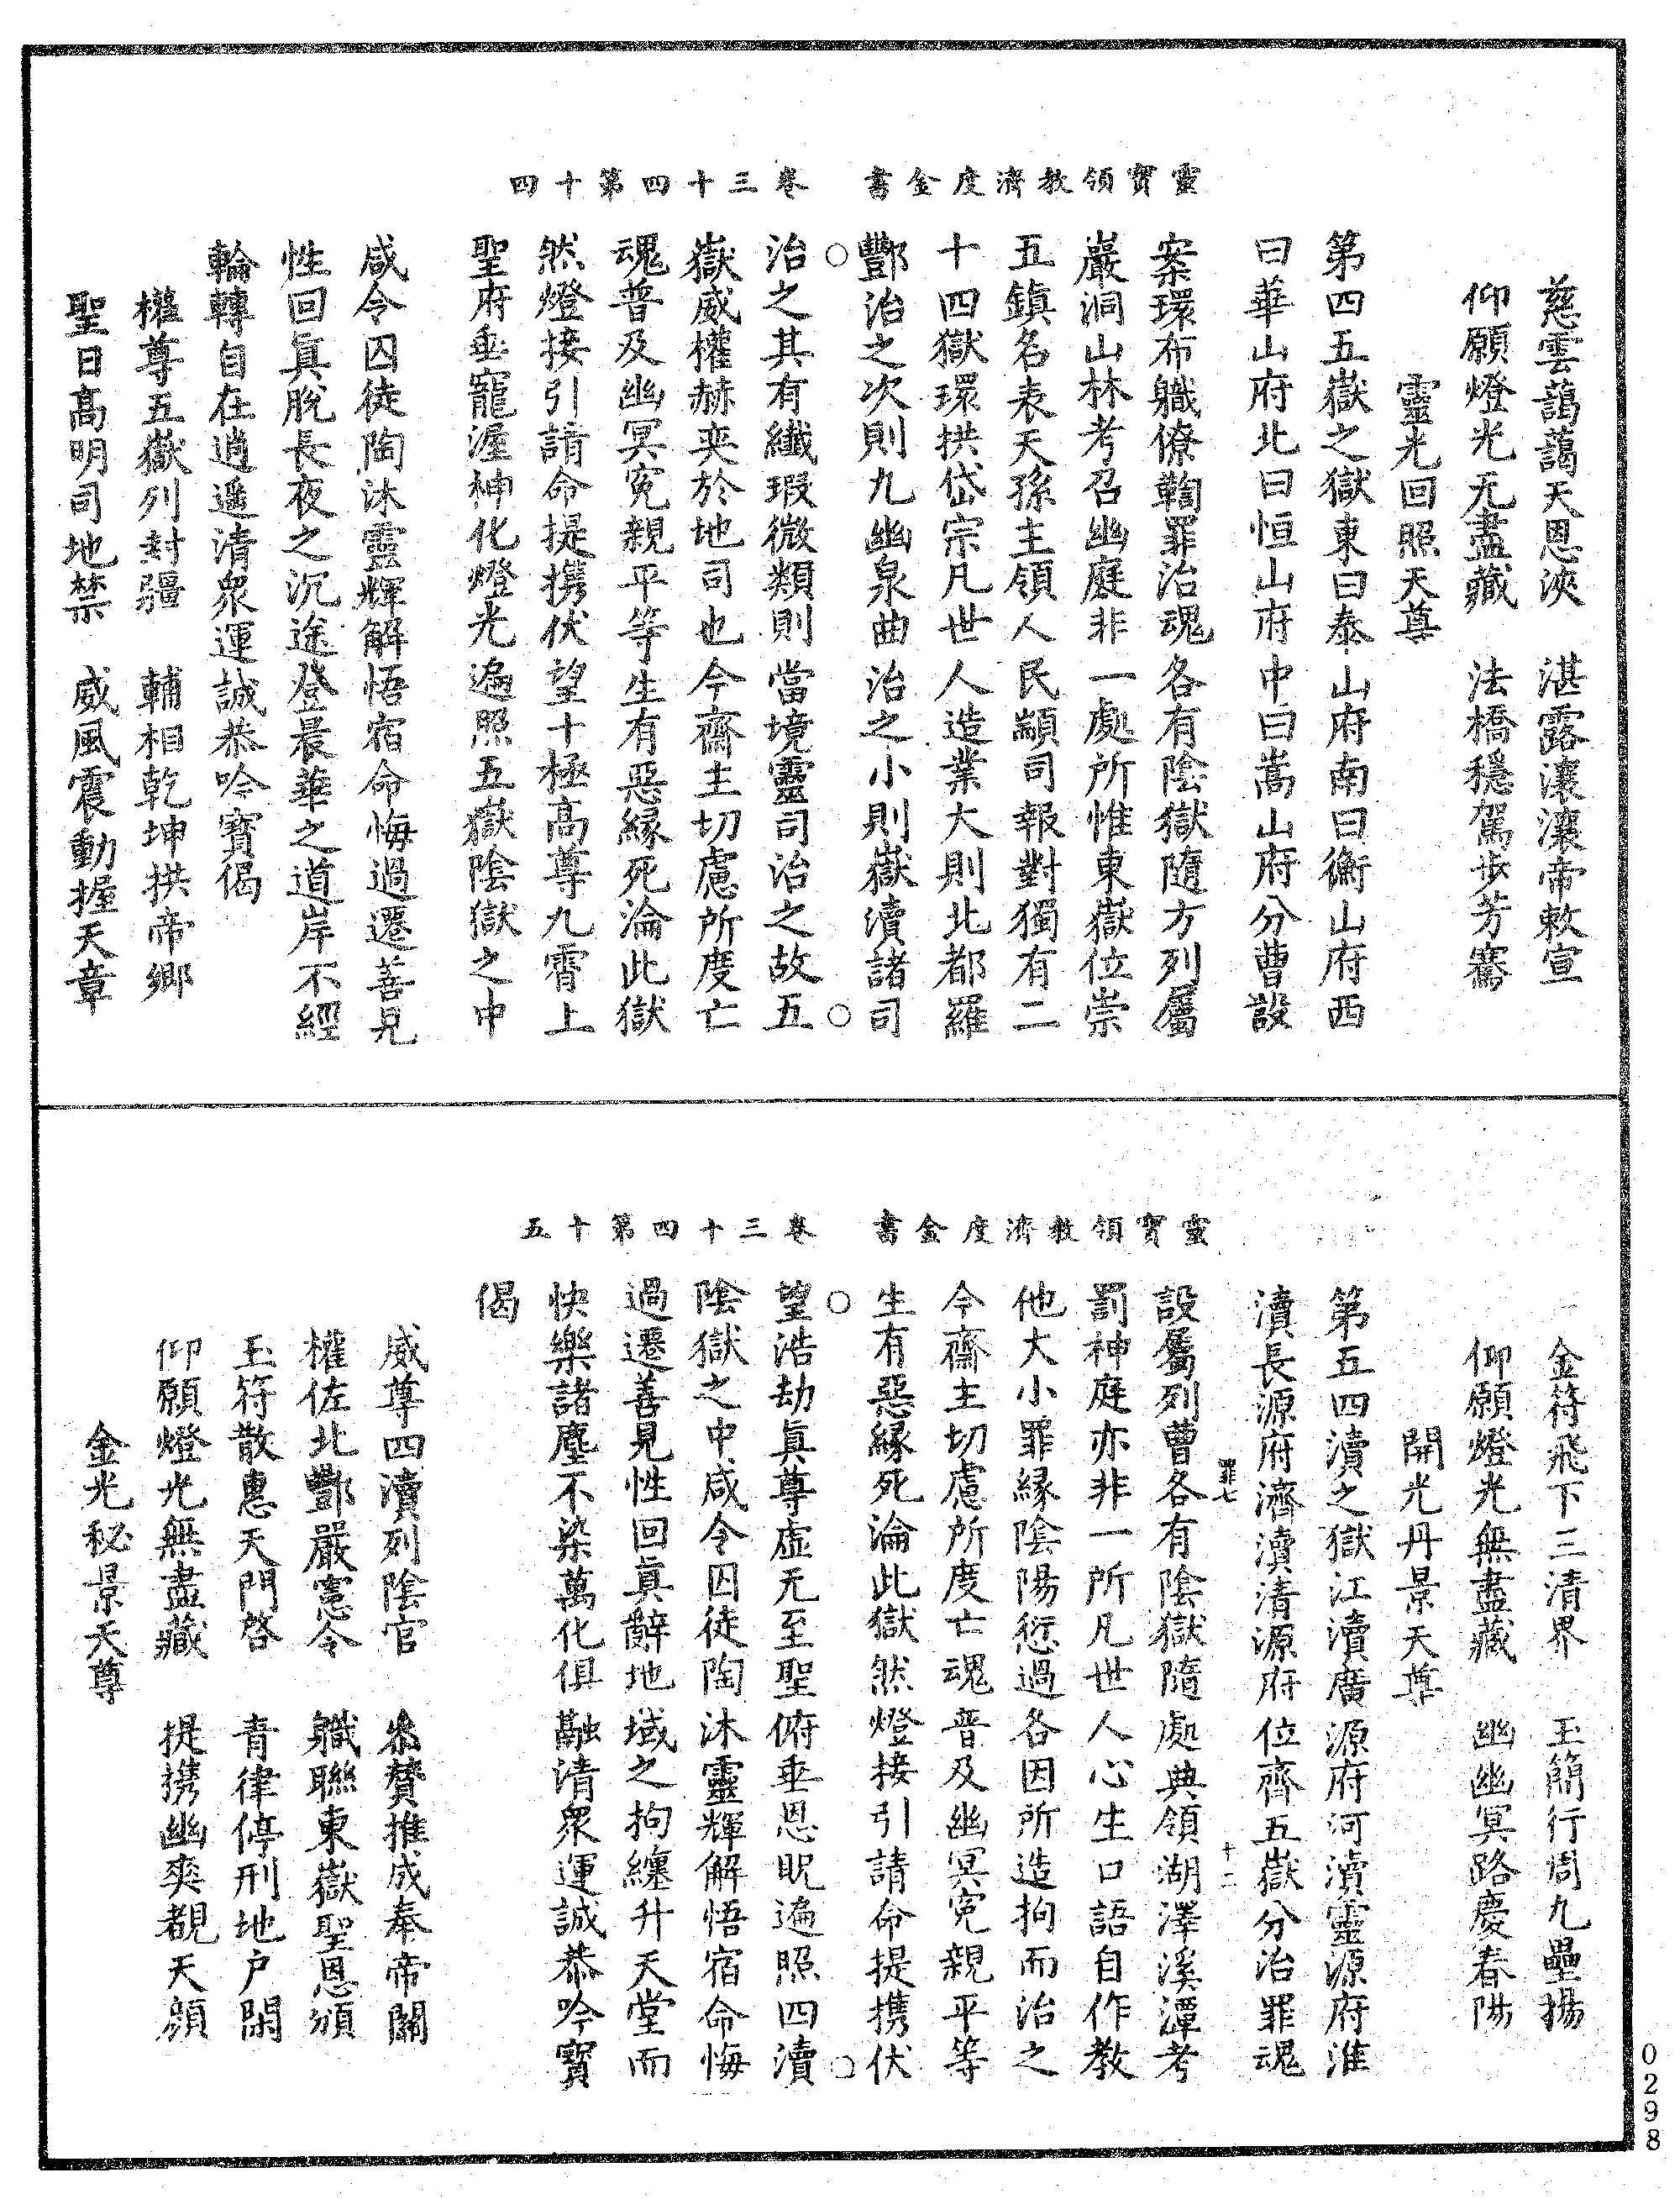 靈寶領教濟度金書　卷三十四第十四
慈雲藹藹天恩浹　湛露瀼瀼帝敕宣
仰願燈光无盡藏　法橋穩駕步芳騫
靈光回照天尊
第四五嶽之獄東曰泰山府南曰衡山府西
曰華山府北曰恒山府中曰嵩山府分曹設
案環布職僚鞫罪治魂各有陰獄隨方列屬
巖洞山林考召幽庭非一處所惟東嶽位崇
五鎮名表天孫主領人民顓司報對獨有二
十四獄環拱岱宗凡世人造業大則北都羅
酆治之次則九幽泉曲治之小則嶽瀆諸司
治之其有纖瑕微類則當境靈司治之故五
嶽威權赫奕於地司也今齋主切慮所度亡
魂普及幽冥冤親平等生有惡緣死淪此獄
然燈接引請命提攜伏望十極高尊九霄上
聖府垂寵渥神化燈光遍照五嶽陰獄之中
咸令囚徒陶沐靈輝解悟宿命悔過遷善見
性回真脫長夜之沉途登晨華之道岸不經
輪轉自在逍遥清衆運誠恭吟寶偈
權尊五嶽列封疆　輔相乾坤拱帝鄉
聖日高明司地禁　威風震動握天章
靈寶領教濟度金書　卷三十四第十五
金符飛下三清界　玉簡行周九壘揚
仰願燈光無盡藏　幽幽冥路慶春陽
開光丹景天尊
第五四瀆之獄江瀆廣源府河瀆靈源府淮
瀆長源府濟瀆清源府位齊五嶽分治罪魂
罪七　十二
設屬列曹各有陰獄隨處典領湖澤溪潭考
罰神庭亦非一所凡世人心生口語自作教
他大小罪緣陰陽愆過各因所造拘而治之
今齋主切慮所度亡魂普及幽冥冤親平等
生有惡緣死淪此獄然燈接引請命提攜伏
望浩劫真尊虛无至聖俯垂恩貺遍照四瀆
陰獄之中咸令囚徒陶沐靈輝解悟宿命悔
過遷善見性回真辭地域之拘纏升天堂而
快樂諸塵不染萬化俱融清衆運誠恭吟寶
偈
威尊四瀆列陰官　贊推成奉帝關
權佐北酆嚴憲令　職聯東嶽聖恩頒
玉符散惠天門啓　青律停刑地户閑
仰願燈光無盡藏　提攜幽爽覩天顔
金光秘景天尊
0298